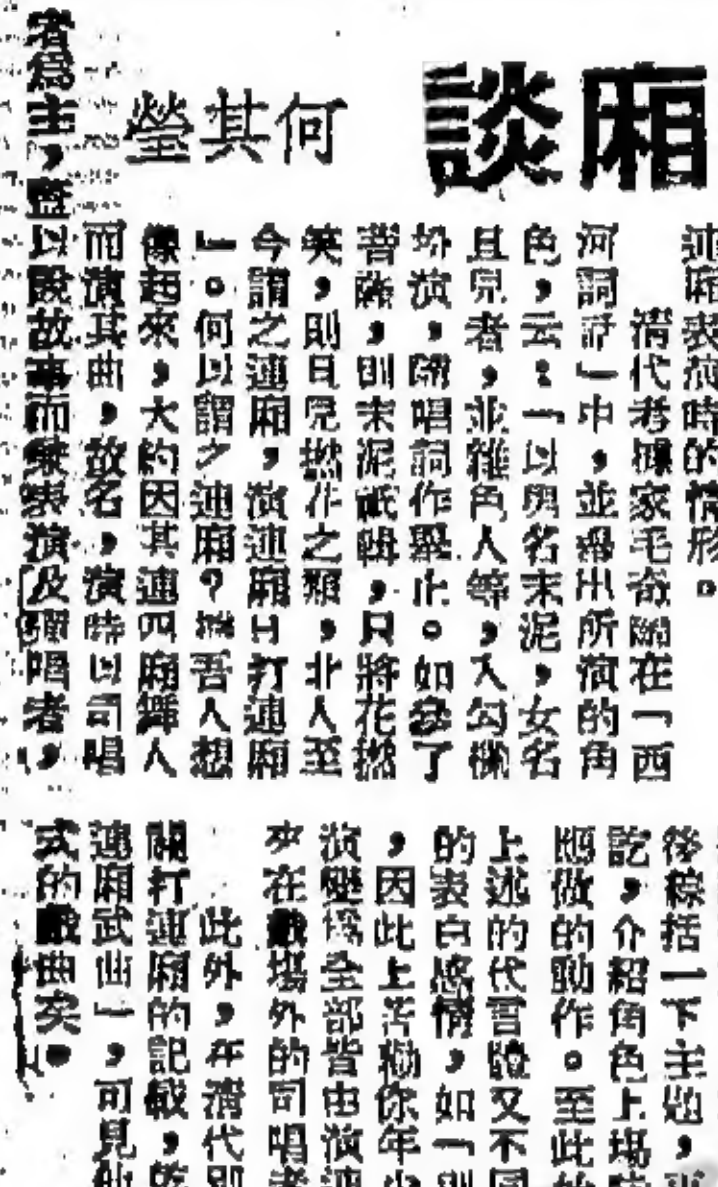 廂談
何其瑩
連廂表演時的情形。
清代考據家毛奇齡在「西
河詞話」中,並舉出所演的角
色,云:「以男名末泥,女名
旦兒者,並雜角人等,入勾欄
扮演,隨唱詞作舉止。如參了
菩薩,則末泥祗輯,只將花撚
笑,則旦兒撚花之類,北人至
今謂之連廂,演連廂曰打連廂
」。何以謂之連廂?據吾人想
像起來,大約因其連四廂舞人
而演其曲,故名,演時以司唱
者為主,
以說故事而兼表演及彈唱者,
後綜括一下主題,
訖,介紹角色上場
應做的動作。至此
上述的代言體又不同
的表白感情,如「
,因此上苦勸你年少
演變為全部皆由演
在戲場外的司唱
此外,在清代別
關打連廂的記載,
連廂武曲」,可見
式的戲曲矣。